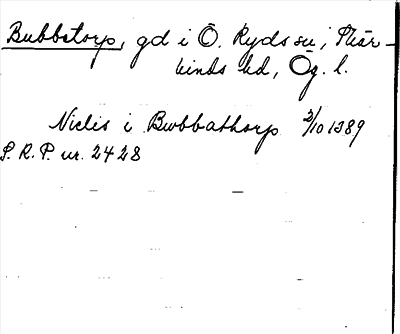 Bubbetorp, gd i Ö. Ryds sn, Skär-
kinds hd, Ög. l.
Niclis i Bwbbathorp 2/10 1389
S. R. P. nr. 2428